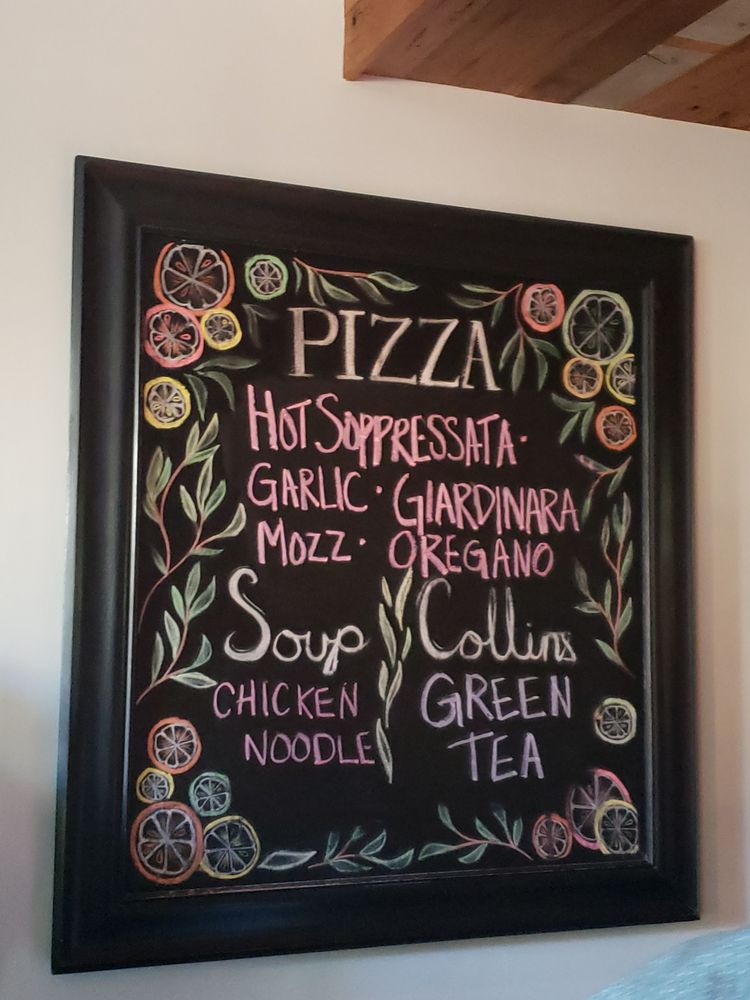 PIZZA
HOT SOPPRESSATA ·
GARLIC · GIARDINARA
MOZZ · OREGANO
Soup
CHICKEN
NOODLE
Collins
GREEN
TEA